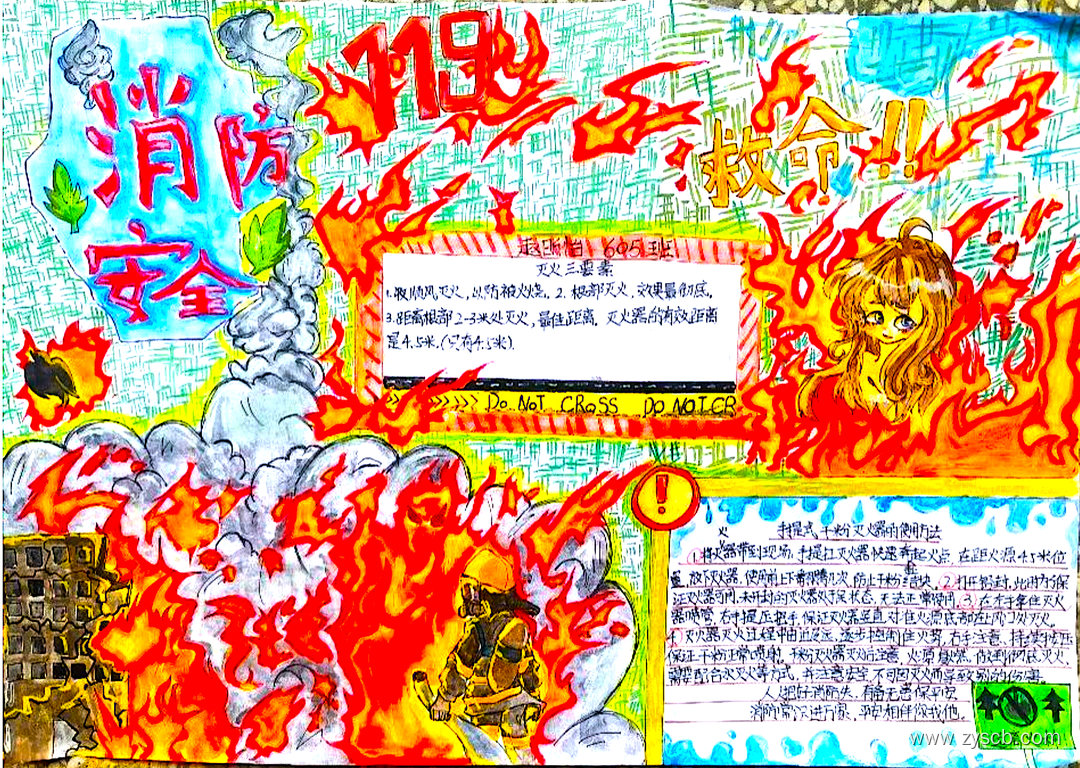 消防
安全
119
救命!!
605班
灭火三要素
1.取顺风灭火,以防被火烧。2.根部灭火,效果最彻底。
3.距离根部2-3米处灭火,最佳距离。灭火器的有效距离
是4.5米。(只有4.5米)
DO NOT CROSS DO NOT CR
!
手提式干粉灭火器的使用方法
①将灭火器带到现场,手提扛灭火器快速奔起火点,在距火源4.5米位
置,放下灭火器,使用前上下颠倒几次,防止干粉结块。②打开铅封,
证灭火器可用,未开封的灭火器处于保状态,无法正常使用。③左手拿住灭火
器喷管,右手提压把手,保证灭火器竖直对准火源底部
④灭火器灭火过程中由近及远,逐步控制住火势,右手注意
保证干粉正常喷射,干粉灭火器灭火后注意,火源 做到彻底灭火,
需要配合水灭火等方式,并注意安全,不可因灭火而导致别的伤害。
人人把好消防关,有备无患保平安
消防常识进万家,平安相伴你我他。
www.zyscb.com